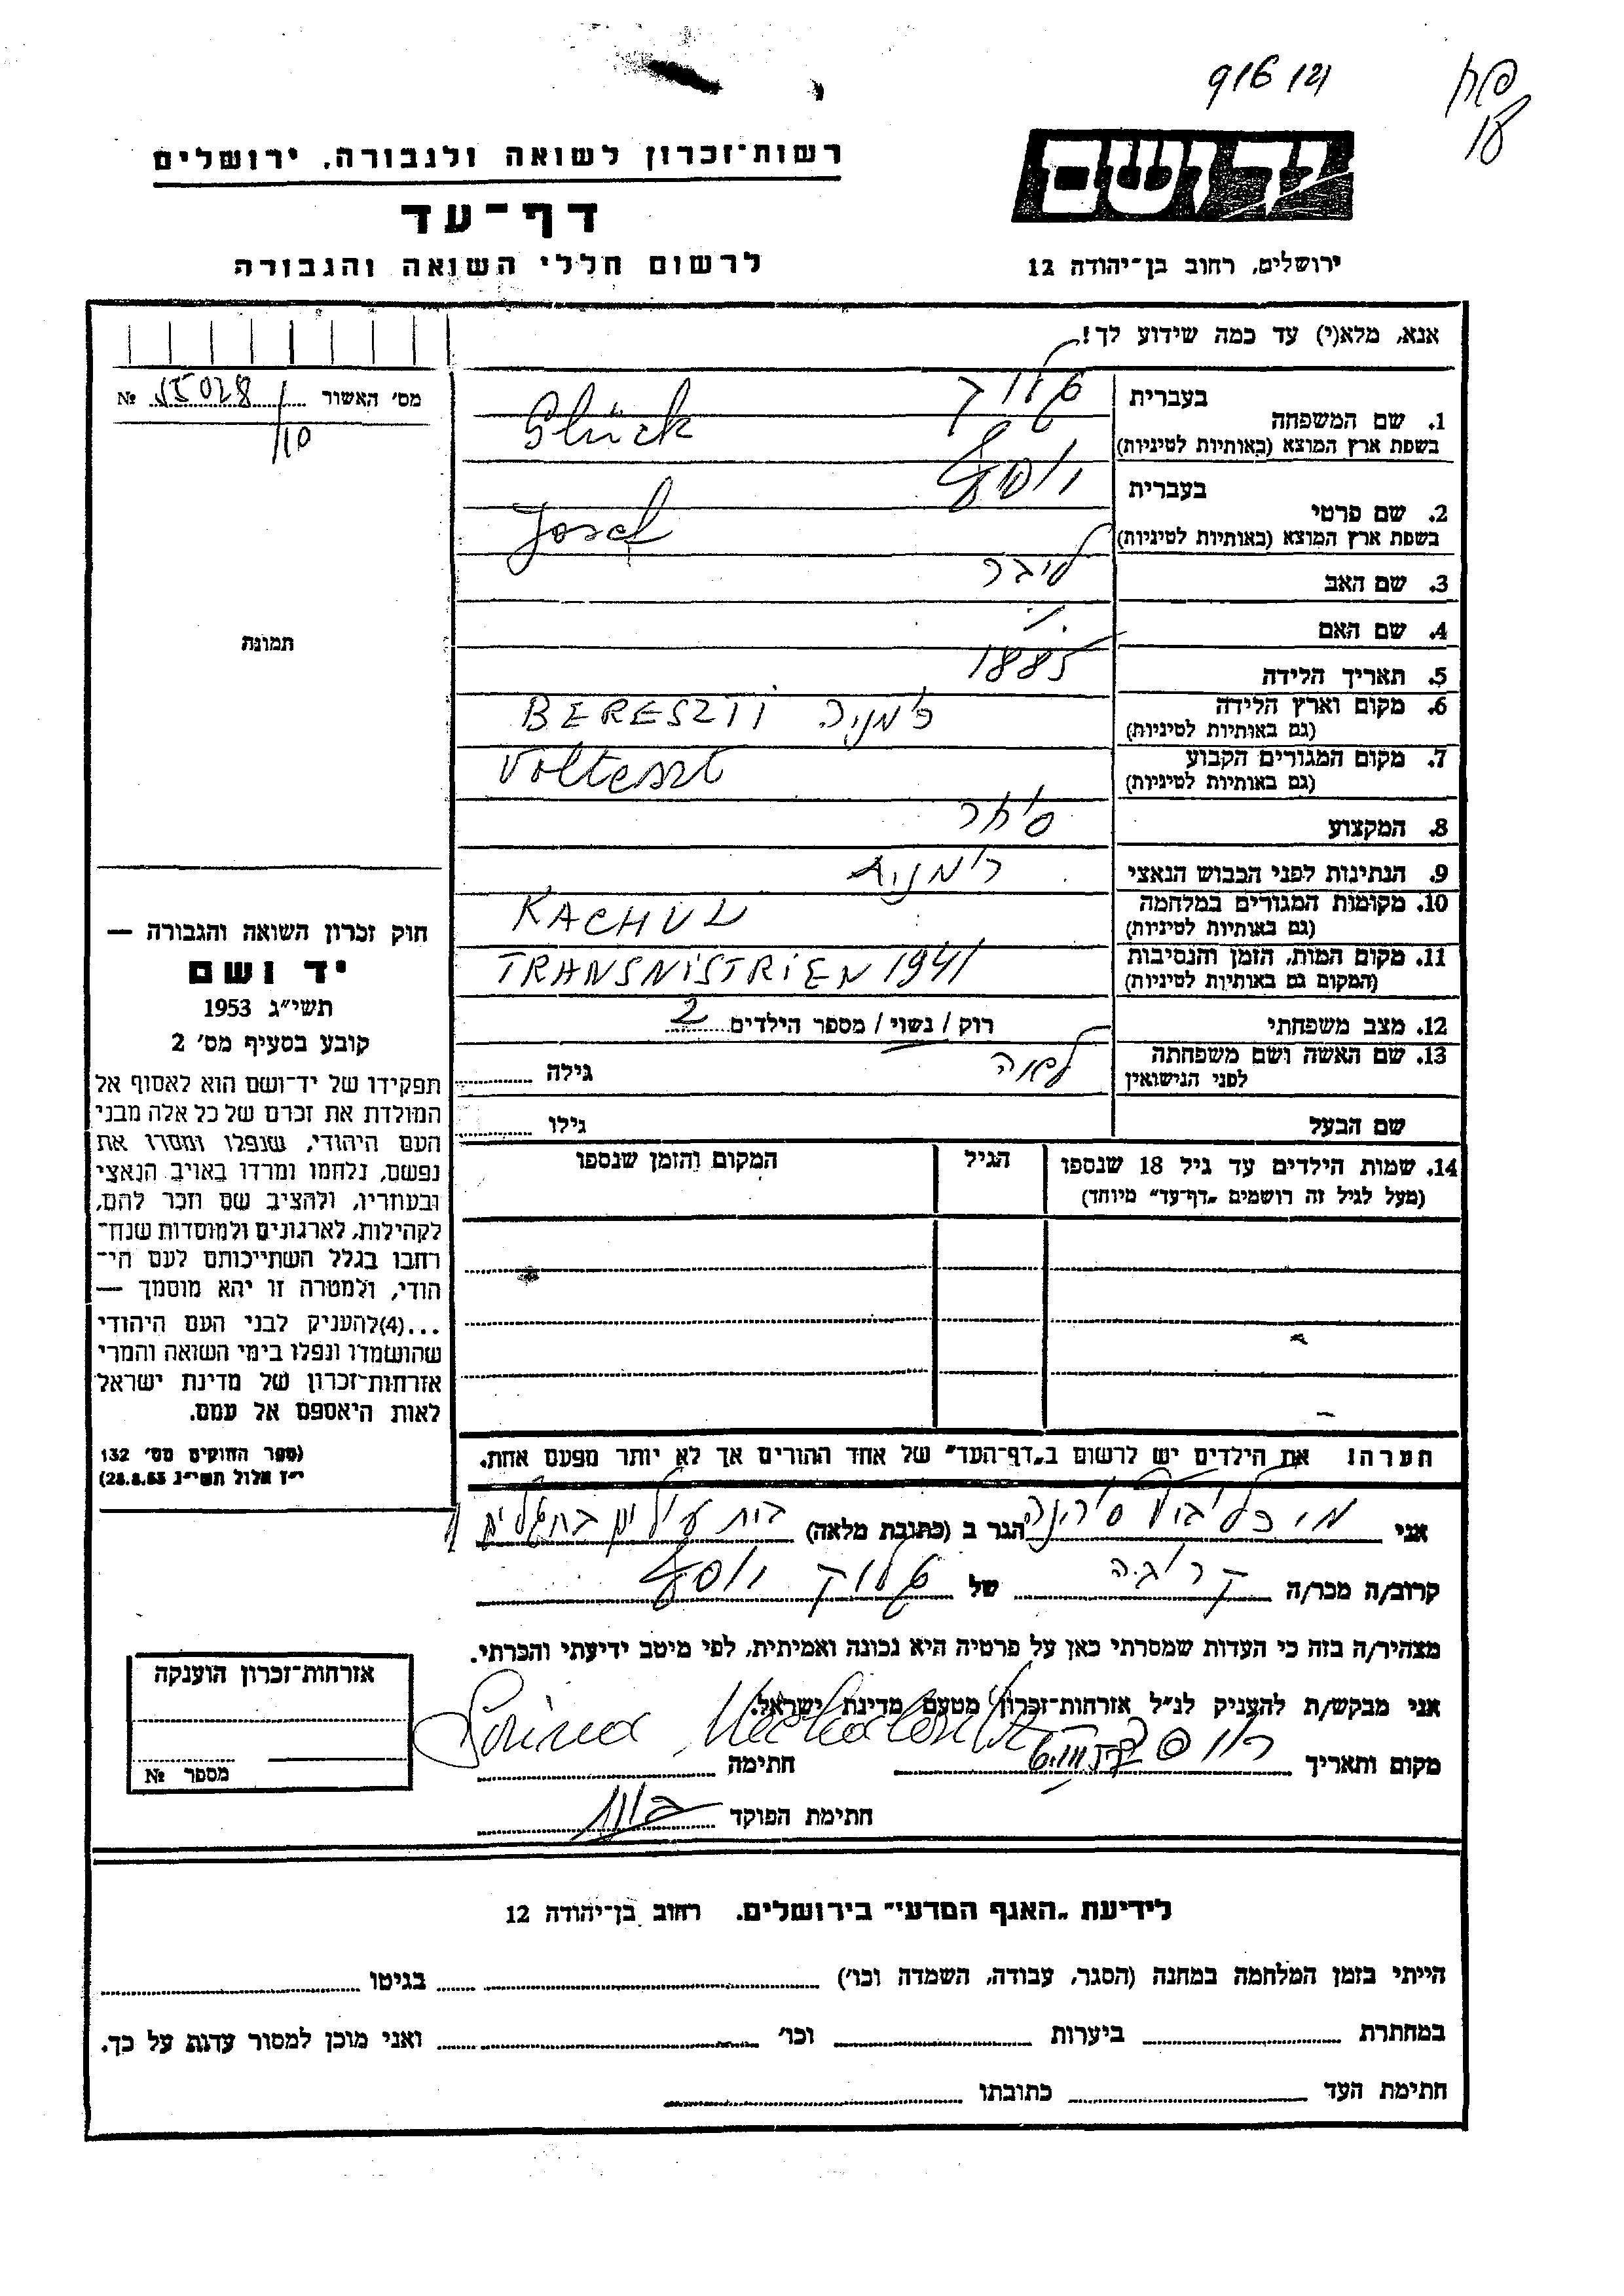 יד ושם
ירושלים, רחוב בן־יהודה 12
רשות־זכרון לשואה ולגבורה, ירושלים
דף־עד
לרשום חללי השואה והגבורה
אנא, מלא(י) עד כמה שידוע לך!
מס׳ האשור 55028 №
10
1. שם המשפחה
בעברית גליק
בשפת ארץ המוצא (באותיות לטיניות) Glück
2. שם פרטי
בעברית יוסף
בשפת ארץ המוצא (באותיות לטיניות) Josef
3. שם האב ליבר
4. שם האם
5. תאריך הלידה 1885
6. מקום וארץ הלידה
(גם באותיות לטיניות) רומניה BERESZTI
7. מקום המגורים הקבוע
(גם באותיות לטיניות) Volteszt
8. המקצוע סוחר
9. הנתינות לפני הכבוש הנאצי רומנית
10. מקומות המגורים במלחמה
(גם באותיות לטיניות) KACHUL
11. מקום המות, הזמן והנסיבות
(המקום גם באותיות לטיניות) TRANSNISTRIEN 1941
12. מצב משפחתי רוק / נשוי / מספר הילדים 2
13. שם האשה ושם משפחתה
לפני הנישואין לאה גילה
שם הבעל גילו
14. שמות הילדים עד גיל 18 שנספו
(מעל לגיל זה רושמים „דף־עד״ מיוחד)
הגיל
המקום והזמן שנספו
הערה: את הילדים יש לרשום ב„דף־העד״ של אחד ההורים אך לא יותר מפעם אחת.
תמונה
חוק זכרון השואה והגבורה —
יד ושם
תשי״ג 1953
קובע בסעיף מס׳ 2
תפקידו של יד־ושם הוא לאסוף אל
המולדת את זכרם של כל אלה מבני
העם היהודי, שנפלו ומסרו את
נפשם, נלחמו ומרדו באויב הנאצי
ובעוזריו, ולהציב שם וזכר להם,
לקהילות, לארגונים ולמוסדות שנח־
רבו בגלל השתייכותם לעם הי־
הודי, ולמטרה זו יהא מוסמך —
...(4)להעניק לבני העם היהודי
שהושמדו ונפלו בימי השואה והמרי
אזרחות־זכרון של מדינת ישראל
לאות היאספם אל עמם.
(ספר החוקים מס׳ 132
י״ז אלול תשי״ג 28.8.53)
אני הגר ב (כתובת מלאה) בית
קרוב/ה מכר/ה קרובה של גליק יוסף
מצהיר/ה בזה כי העדות שמסרתי כאן על פרטיה היא נכונה ואמיתית, לפי מיטב ידיעתי והכרתי.
אני מבקש/ת להעניק לנ״ל אזרחות־זכרון מטעם מדינת ישראל.
מקום ותאריך חתימה
חתימת הפוקד
אזרחות־זכרון הוענקה
מספר №
לידיעת „האגף המדעי״ בירושלים. רחוב בן־יהודה 12
הייתי בזמן המלחמה במחנה (הסגר, עבודה, השמדה וכו׳) בגיטו
במחתרת ביערות וכו׳ ואני מוכן למסור עדות על כך.
חתימת העד כתובתו